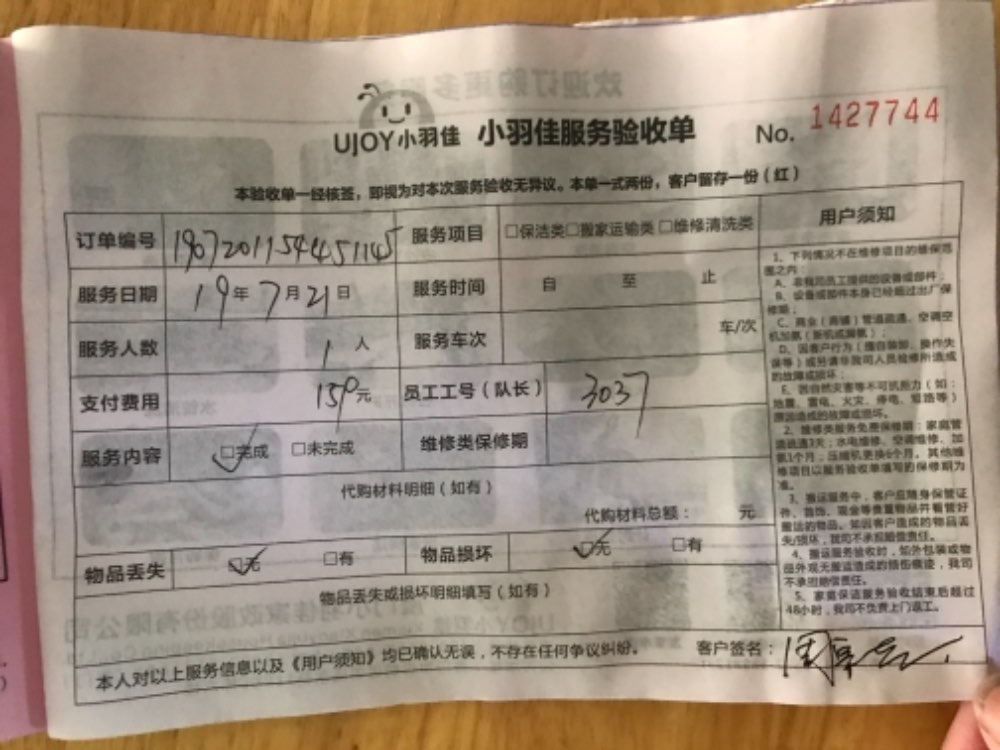 UJOY小羽佳 小羽佳服务验收单 No. 1427744
本验收单一经核签，即视为对本次服务验收无异议。本单一式两份，客户留存一份（红）
订单编号 190720115444451145 服务项目 □保洁类□搬家运输类□维修清洗类
服务日期 19年7月21日 服务时间 自 至 止
服务人数 1人 服务车次 车/次
支付费用 150元 员工工号（队长） 3037
服务内容 □完成 □未完成 维修类保修期
代购材料明细（如有）
代购材料总额： 元
物品丢失 □无 □有 物品损坏 □无 □有
物品丢失或损坏明细填写（如有）
本人对以上服务信息以及《用户须知》均已确认无误，不存在任何争议纠纷。 客户签名：
用户须知
1、下列情况不在维修项目的维保范
围之内：
A、非我司员工提供的设备或部件；
B、设备或部件本身已经超过出厂保
修期；
C、商业（商铺）管道疏通、空调空
机加氨（新机或漏氨）；
D、因客户行为（擅自装卸、操作失
误等）或另请非我司人员检修所造成
的故障或损坏；
E、因自然灾害等不可抗能力（如：
地震、雷电、火灾、停电、短路等）
原因造成的故障或损坏。
2、维修类服务免费保修期：家庭管
道疏通3天；水电维修、空调维修、加
氨1个月；压缩机更换6个月。其他维
修项目以服务验收单填写的保修期为
准。
3、搬运服务中，客户应随身保管证
件、首饰、现金等贵重物品并看管好
搬运的物品。如因客户造成的物品丢
失/损坏，我司不承担赔偿责任。
4、搬运服务验收时，如外包装或物
品外观无搬运造成的损伤痕迹，我司
不承担赔偿责任。
5、家庭保洁服务验收结束后超过
48小时，我司不免费上门返工。